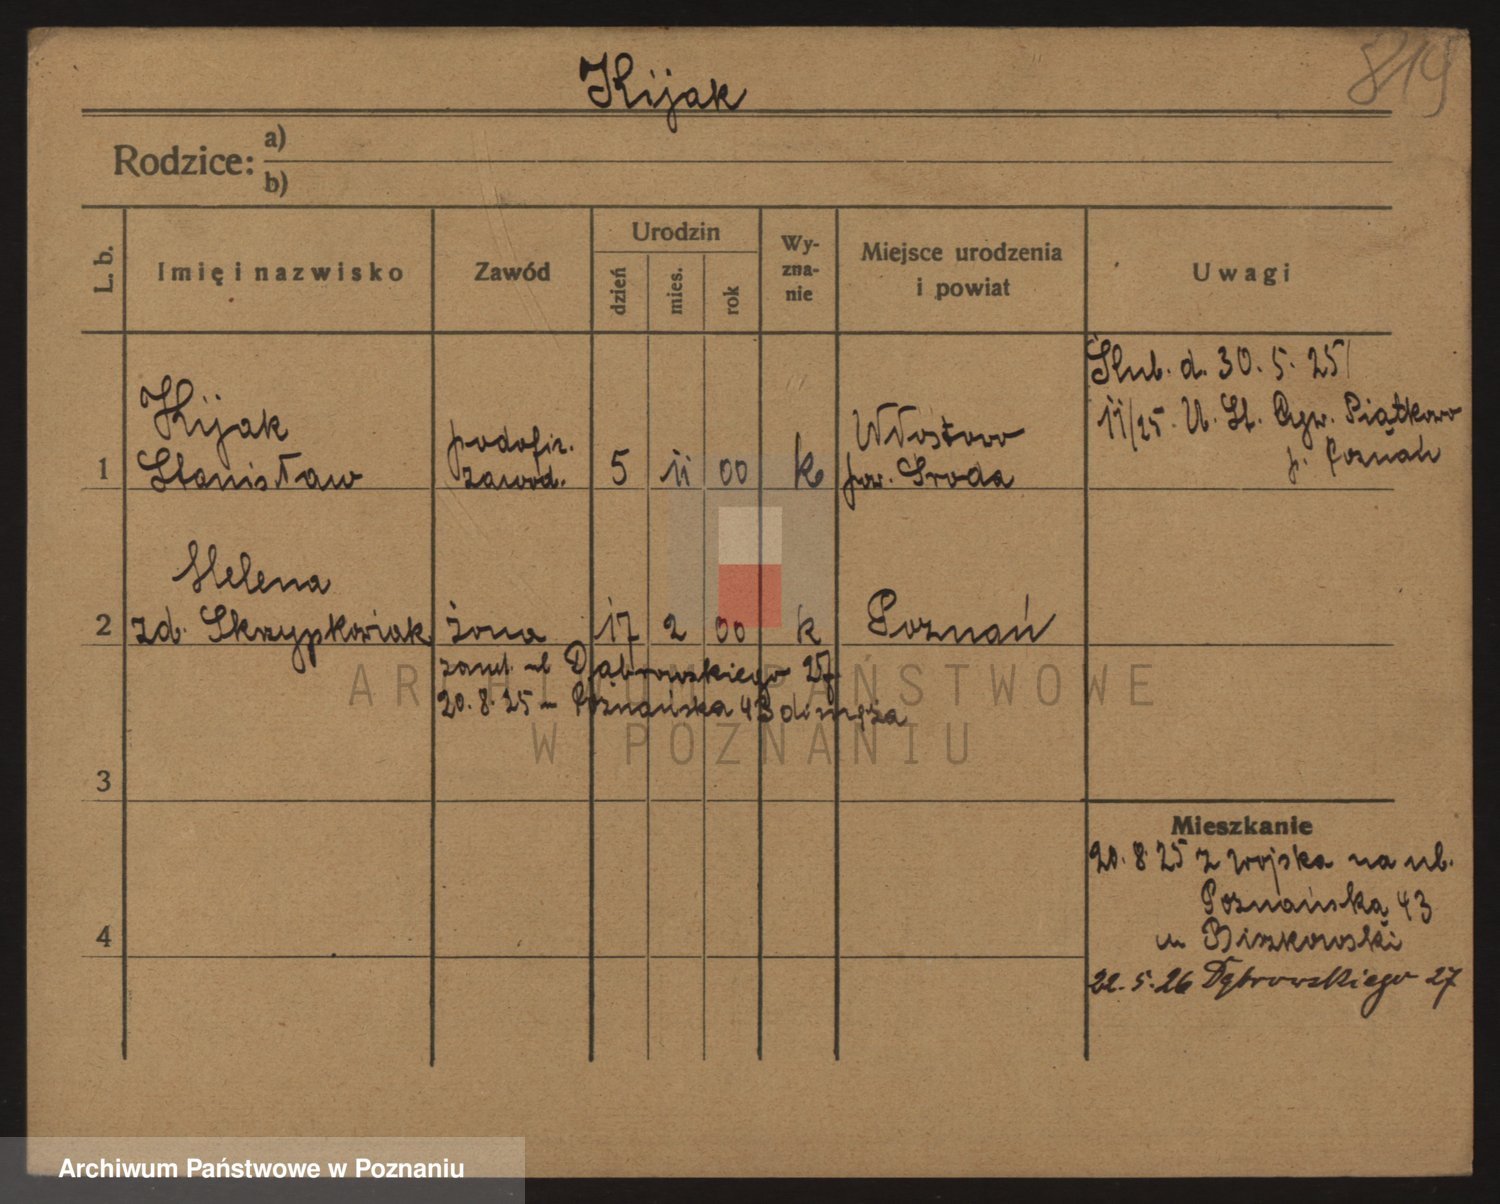 819
Kijak
Rodzice: a)
b)
L. b.
Imię i nazwisko
Zawód
Urodzin
dzień
mies.
rok
Wy-
zna-
nie
Miejsce urodzenia
i powiat
Uwagi
1
Kijak
Stanisław
podofic.
zawod.
5 11 00
k
Włostowo
pow. Środa
Ślub. d. 30. 5. 25
11/25. U. St. Piątkowo
p. Poznań
2
Helena
zd. Skrzypkowiak
żona
17 2 00
k
Poznań
zam. ul Dąbrowskiego 27
20. 8. 25 Poznańska 43 do męża
3
4
Mieszkanie
20. 8 25 z wojska na ul.
Poznańska 43
u Biszkowski
22. 5. 26 Dąbrowskiego 27
ARCHIWUM PAŃSTWOWE
W POZNANIU
Archiwum Państwowe w Poznaniu